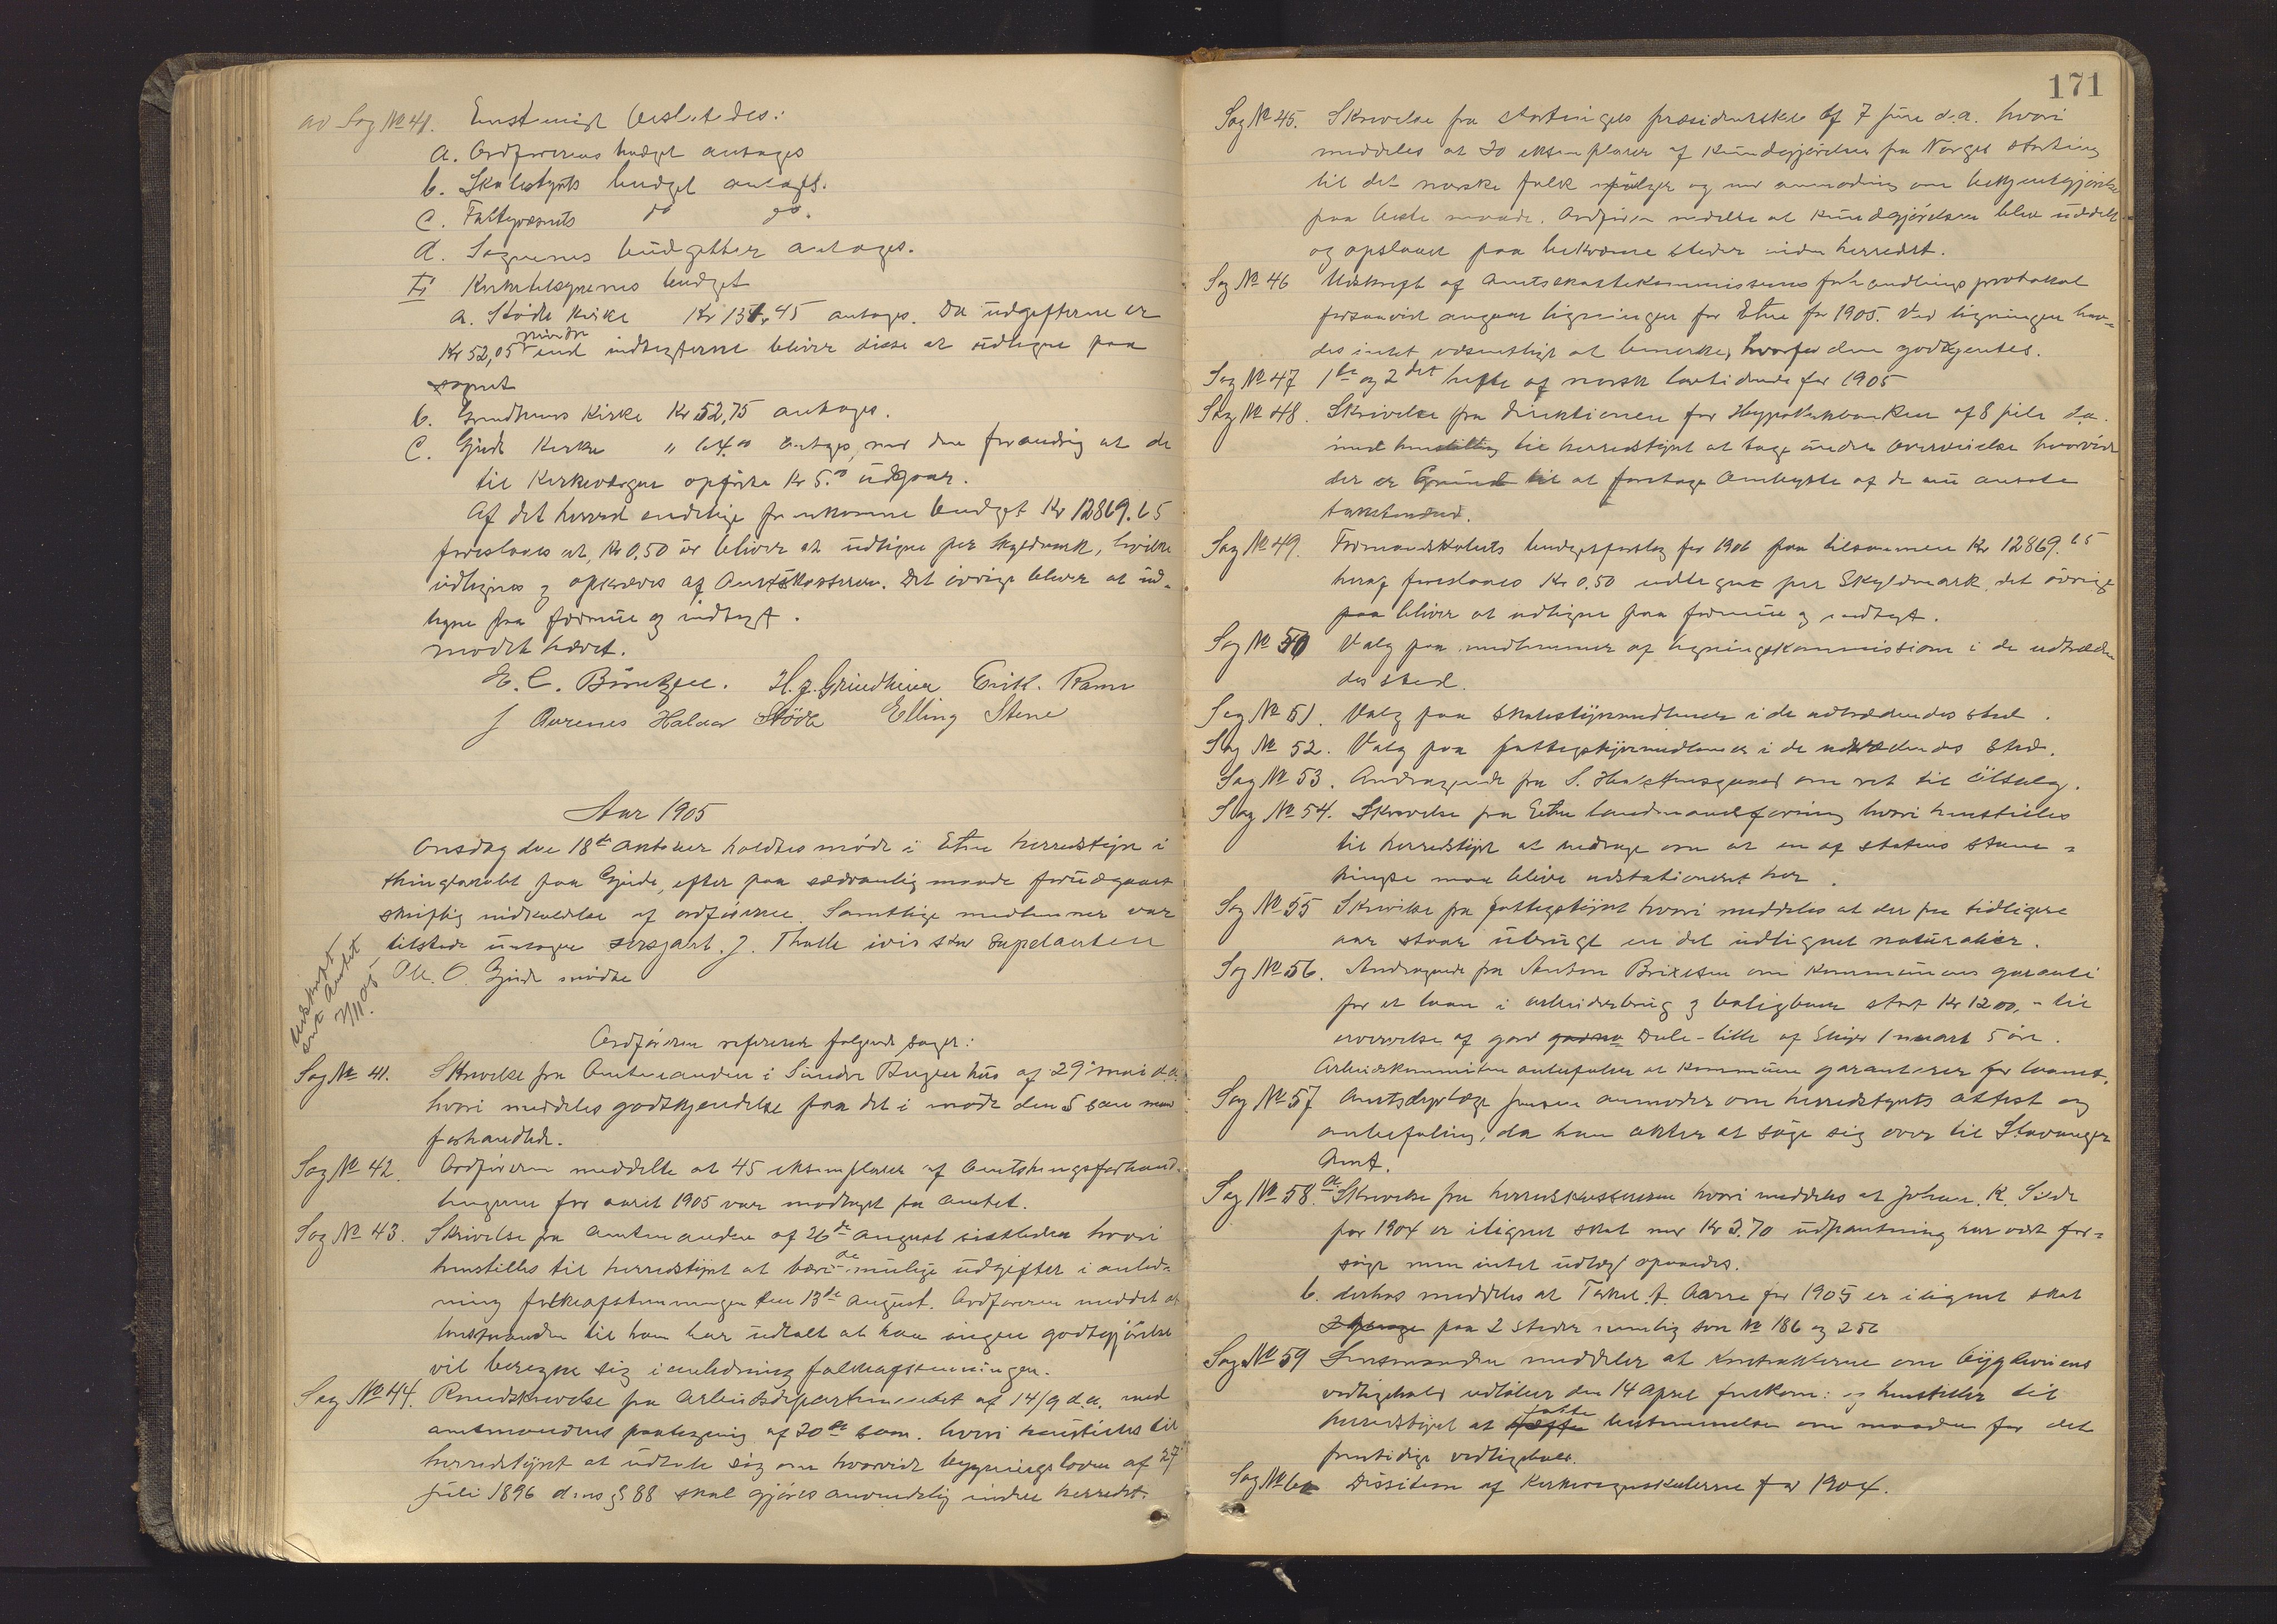 ad Sag № 41. Enstemigt besluttedes:
a. Ordførerens budget antages
b. Skolestyrets budget antages.
C. Fattigvæsnets do do.
d. Sognenes budgetter antages.
II Kirketilsynenes budget
a. Stødle Kirke Kr 131,45 antages. Da udgifterne er
Kr 52,05 mindre end indtægterne bliver disse at udligne paa
sognet
b. Grindheims Kirke Kr 52,75 antages.
C. Gjerde Kirke " 64.00 antages, med den forandring at de
til Kirkevergen opførte Kr 5.00 udgaar.
Af det herved endelige fremkomne budget Kr 12869.65
foreslaaes at, Kr 0,50 ør bliver at udligne per Skyldmark, hvilke
udlignes og opkræves af Amtskassereren. Det øvrige bliver at ud-
ligne paa formue og indtægt.
mødet hævet.
E. C. Børretzen. H. J. Grindheim Erik. Ramn
J Aurenes Haldor Stödle Elling Stene
Aar 1905
Onsdag den 18de oktober holdtes møde i Etne herredstyre i
thinglokalet paa Gjerde, efter paa sædvanlig maade forudgaaet
skriftlig indkaldelse af ordføreren. Samtlige medlemmer var
tilstede untagen sersjant. J. Tralle i vis sted supelanten
Ole. O. Gjerde mødte
Udskrift
snt Amtet
7/11 05
Ordføreren refererede følgende sager:
Sag № 41. Skrivelse fra Amtmanden i Søndre Bergenhus af 29de mai d.a.
hvori meddeles godkjendelse paa det i møde den 5 sam mnd
forhandlede.
Sag № 42. Ordføreren meddelte at 45 eksemplarer af Amtstingsforhand-
lingerne for aaret 1905 var modtaget fra amtet.
Sag № 43. Skrivelse fra Amtmanden af 26de august sistleden hvori
henstilles til herredstyret at bære de mulige udgifter i anled-
ning folkeafstemningen den 13de august. Ordføreren meddelte at
lensmanden til ham har udtalt at han ingen godtgjørelse
vil beregne sig i anledning folkeafstemningen.
Sag № 44. Rundskrivelse fra Arbeidsdepartementet af 14/9 d.a. med
amtmandens paategning af 20de sam. hvori henstilles til
herredstyret at udtale sig om hvorvidt bygningsloven af 27
juli 1896 dens § 88 skal gjøres anvendelig inden herredet.
171
Sag № 45. Skrivelse fra stortingets præsidentskab af 7 juni d.a. hvori
meddeles at 20 eksemplarer af Kundgjørelser fra Norges storting
til det norske folk følger og med anmodning om bekjentgjørelse
paa beste maade. Ordføreren meddelte at kundgjørelsen blev uddelt
og opslaaet paa bekvemme steder inden herredet.
Sag № 46 Udskrift af Amtsskattekommissionens forhandlingsprotokol
forsaavidt angaar ligningen for Etne for 1905. Ved ligningen hav-
des intet væsentligt at bemerke, hvorfor den godkjentes.
Sag № 47 1te og 2det hefte af norsk lovtidende for 1905
Sag № 48. Skrivelse fra direktionen for Hypothekbanken af 8 juli d.a.
med henstilling til herredstyret at tage under overveielse hvorvidt
der er Grund til at foretage Ombytte af de nu ansatte
takstmænd.
Sag № 49. Formandskabets budgetforslag for 1906 paa tilsammen Kr 12869.65
heraf foreslaaes Kr 0.50 udlignet per Skyldmark, det øvrige
paa bliver at udligne paa formue og indtægt.
Sag № 50 Valg paa medlemmer af ligningskommissionen i de udtræden
des sted.
Sag № 51. Valg paa skolestyrmedlemer i de udtrædendes sted.
Sag № 52. Valg paa fattigstyrmedlemer i de udtrædendes sted.
Sag № 53. Andragende fra S. om ret til ölsalg.
Sag № 54. Skrivelse fra Etne landmandsforening hvori henstilles
til herredstyret at andrage om at en af statens stam-
hingste maa blive udstationeret her.
Sag № 55 Skrivelse fra fattigstyret hvori meddeles at der fra tidligere
aar staar ubrugt en del udlignet naturalier.
Sag № 56. Andragende fra Anton Brixsen om kommunens garanti
for et laan i arbeiderbrug og boligbank stort Kr 1200,- til
ervervelse af gard gardno Dule-lille af Skyld 1 mark 5 øre.
Arbeidskommiteen anbefaler at kommunen garanterer for laanet.
Sag № 57 Amtsdyrlæge Jensen anmoder om herredstyrets attest og
anbefaling, da han akter at søge sig over til Stavanger
Amt.
Sag № 58. a. Skrivelse fra herredskassereren hvori meddeles at Johan. K. Silde
for 1904 er ilignet skat med Kr 3.70 udpantning har vært for-
søgt men intet udlæg opnaaedes.
b. derhos meddeles at Torkel A. Aarre for 1905 er ilignet skat
2 gange paa 2 steder nemlig som № 186 og 256
Sag № 59 Lensmanden meddeler at kontrakterne om bygdeveiens
vedligehold udløber den 14 april førstkom: og henstiller til
herredstyret at fatte bestemmelse om maaden for det
fremtidige vedligehold.
Sag № 60 Dissition af Kirkeregnskaberne for 1904.